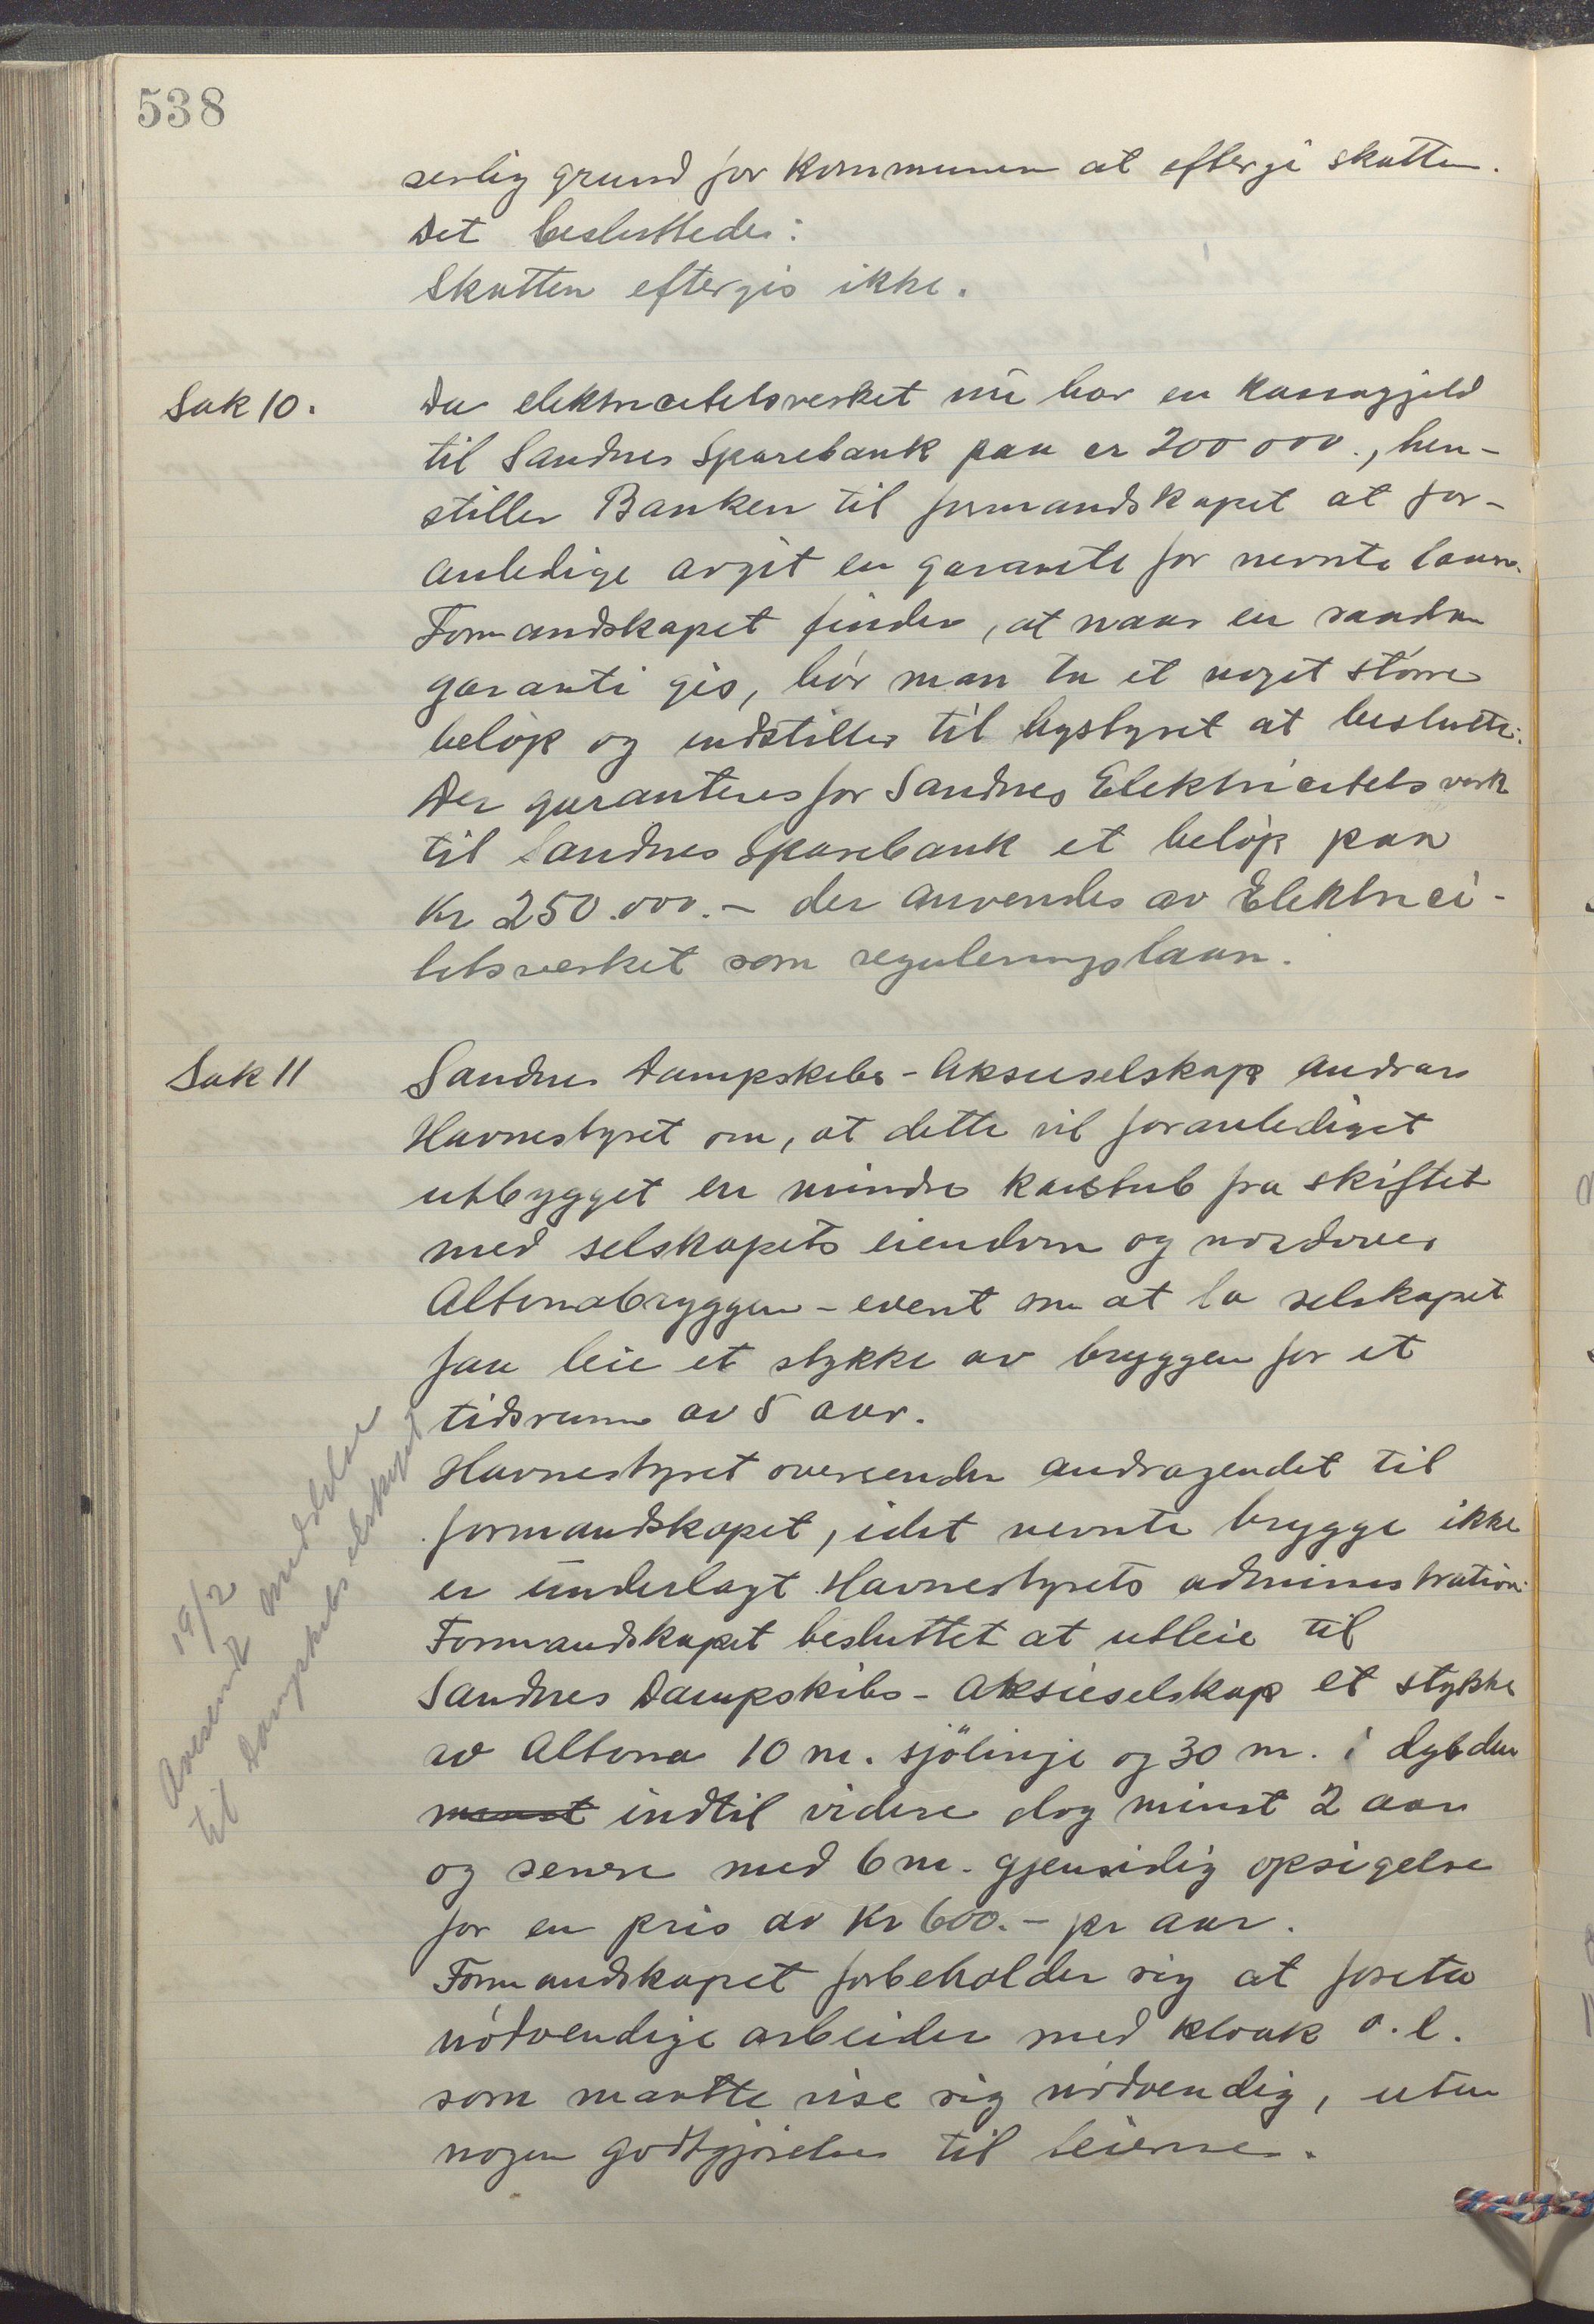 538
serlig grund for kommunen at eftergi skatten.
Det besluttedes:
Skatten eftergis ikke.
Sak 10.
Da elektricitetsverket nu har en kassagjeld
til Sandnes Sparebank paa cr 200 000., hen-
stiller Banken til formandskapet at for-
anledige avgit en garanti for nevnte laan.
Formandskapet finder, at naar en saadan
garanti gis, bør man ta et noget større
beløp og indstiller til bystyret at beslutte:
Der garanteres for Sandnes Elektricitetsverk
til Sandnes Sparebank et beløp paa
Kr 250.000.- der anvendes av Elektrici-
tetsverket som reguleringslaan.
Sak 11
Sandnes Dampskibs-Aksieselskap andrar
Havnestyret om, at dette vil foranlediget
utbygget en mindre kaistub fra skiftet
med selskapets eiendom og nordover
Altonabryggen - event om at la selskapet
faa leie et stykke av bryggen for et
tidsrum av 5 aar.
Havnestyret oversender andragendet til
formandskapet, idet nevnte brygge ikke
er underlagt Havnestyrets administration.
Formandskapet besluttet at utleie til
Sandnes Dampskibs-Aksieselskap et stykke
av Altona 10 m. sjölinje og 30 m. i dybden
minst indtil videre dog minst 2 aar
og senere med 6 m. gjensidig opsigelse
for en pris av Kr 600.- pr aar.
Formandskapet forbeholder sig at foreta
nödvendige arbeider med kloak o.l.
som maatte vise sig nödvendig, uten
nogen godtgjörelse til leierne.
19/2
Avsendt meddelelse
til Dampskibsselskapet